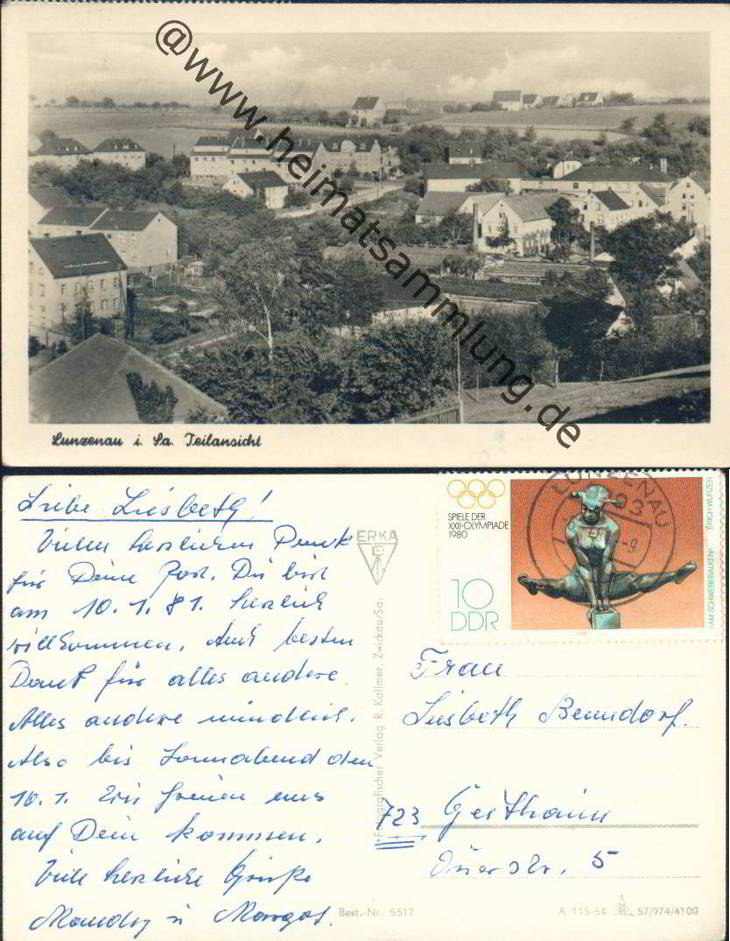 @www.heimatsammlung.de
Lunzenau i. Sa. Teilansicht
Liebe Liesbeth!
Vielen herzlichen Dank
für Deine Post. Du bist
am 10.1.81. herzlich
willkommen. Auch besten
Dank für alles andere.
Alles andere mündlich.
Also bis Sonnabend den
10.1. Wir freuen uns
auf Dein kommen.
Viele herzliche Grüße
u Margot.
ERKA
Fotografischer Verlag R. Kallmer, Zwickau/Sa.
SPIELE DER
XXII. OLYMPIADE
1980
10
DDR
„AM SCHWEBEBALKEN“
ERICH WURZER
LUNZENAU
Frau
Liesbeth Benndorf.
723 Geithain
5
Best.-Nr. 5517
A-115-54 57/974/4100